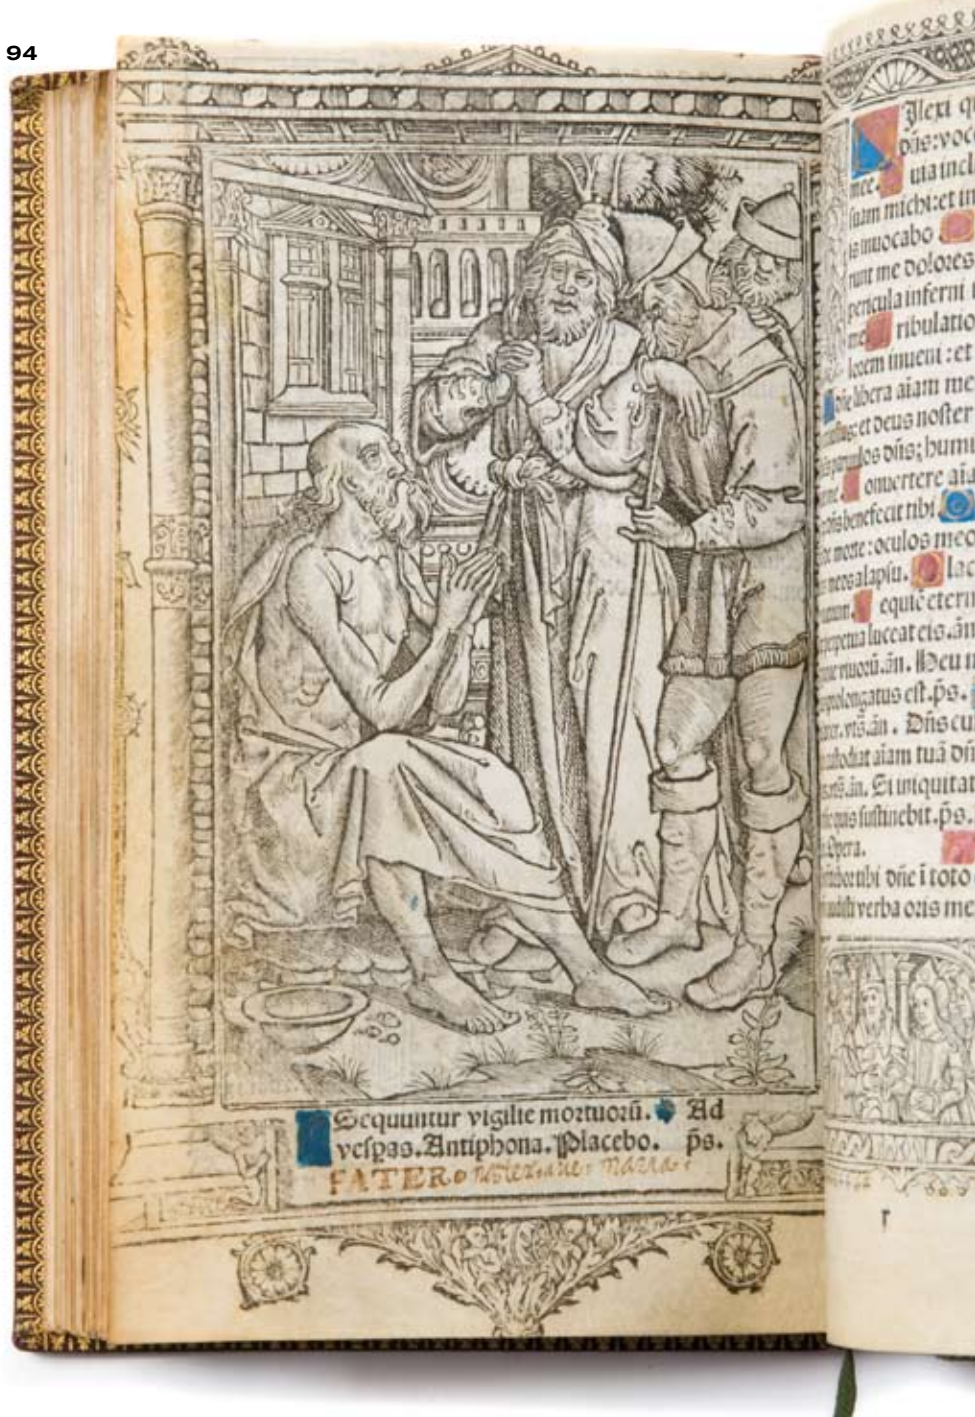 94
Sequuntur vigilie mortuorū. Ad
vespas. Antiphona. Placebo. p̄s.
PATER noster: aue: maria:
ilexi q
dn̄s: voc
mee. uia incl
suam michi: et in
is inuocabo
runt me dolores
pericula inferni i
me ribulatio
lorem inueni: et
libera aīam me
et deus noster
dn̄s: humi
onuertere aīa
benefecit tibi
morte: oculos meo
lapsu. lac
equiē etern
luceat eis. an̄
an̄. Heu m
prolongatus est. p̄s.
an̄. Dn̄s cu
aīam tuā dn̄
an̄. Si iniquitat
quis sustinebit. p̄s.
Opera.
tibi dn̄e ī toto
verba oris me
r